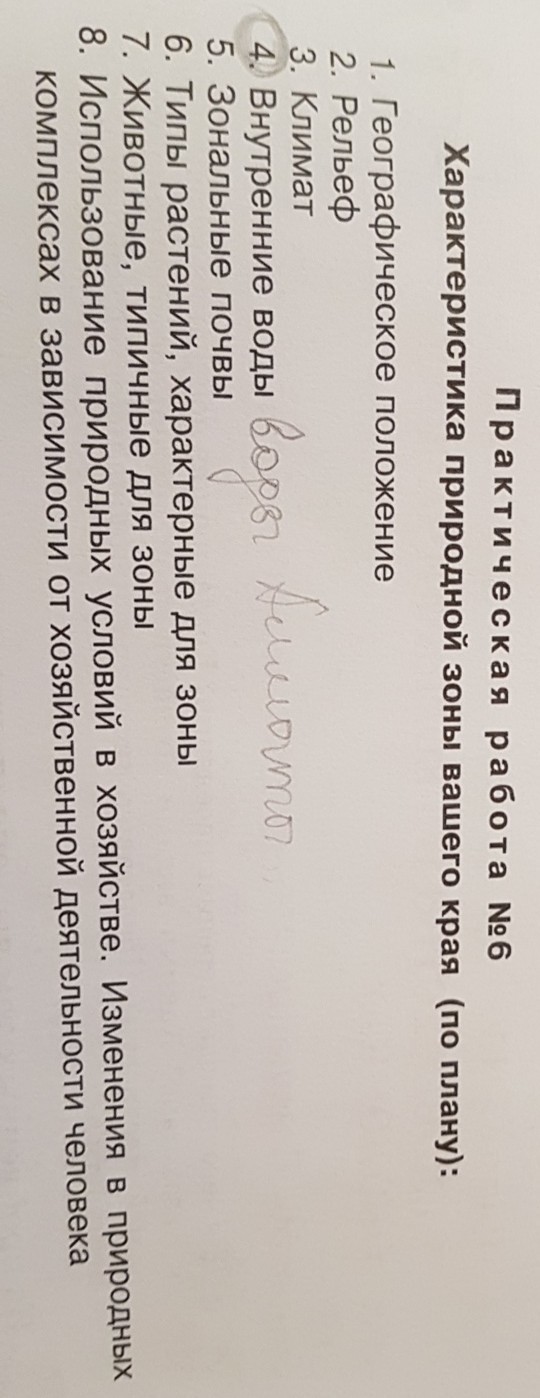 Практическая работа №6
Характеристика природной зоны вашего края (по плану):
1. Географическое положение
2. Рельеф
3. Климат
4. Внутренние воды воды
5. Зональные почвы
6. Типы растений, характерные для зоны
7. Животные, типичные для зоны
8. Использование природных условий в хозяйстве. Изменения в природных
комплексах в зависимости от хозяйственной деятельности человека